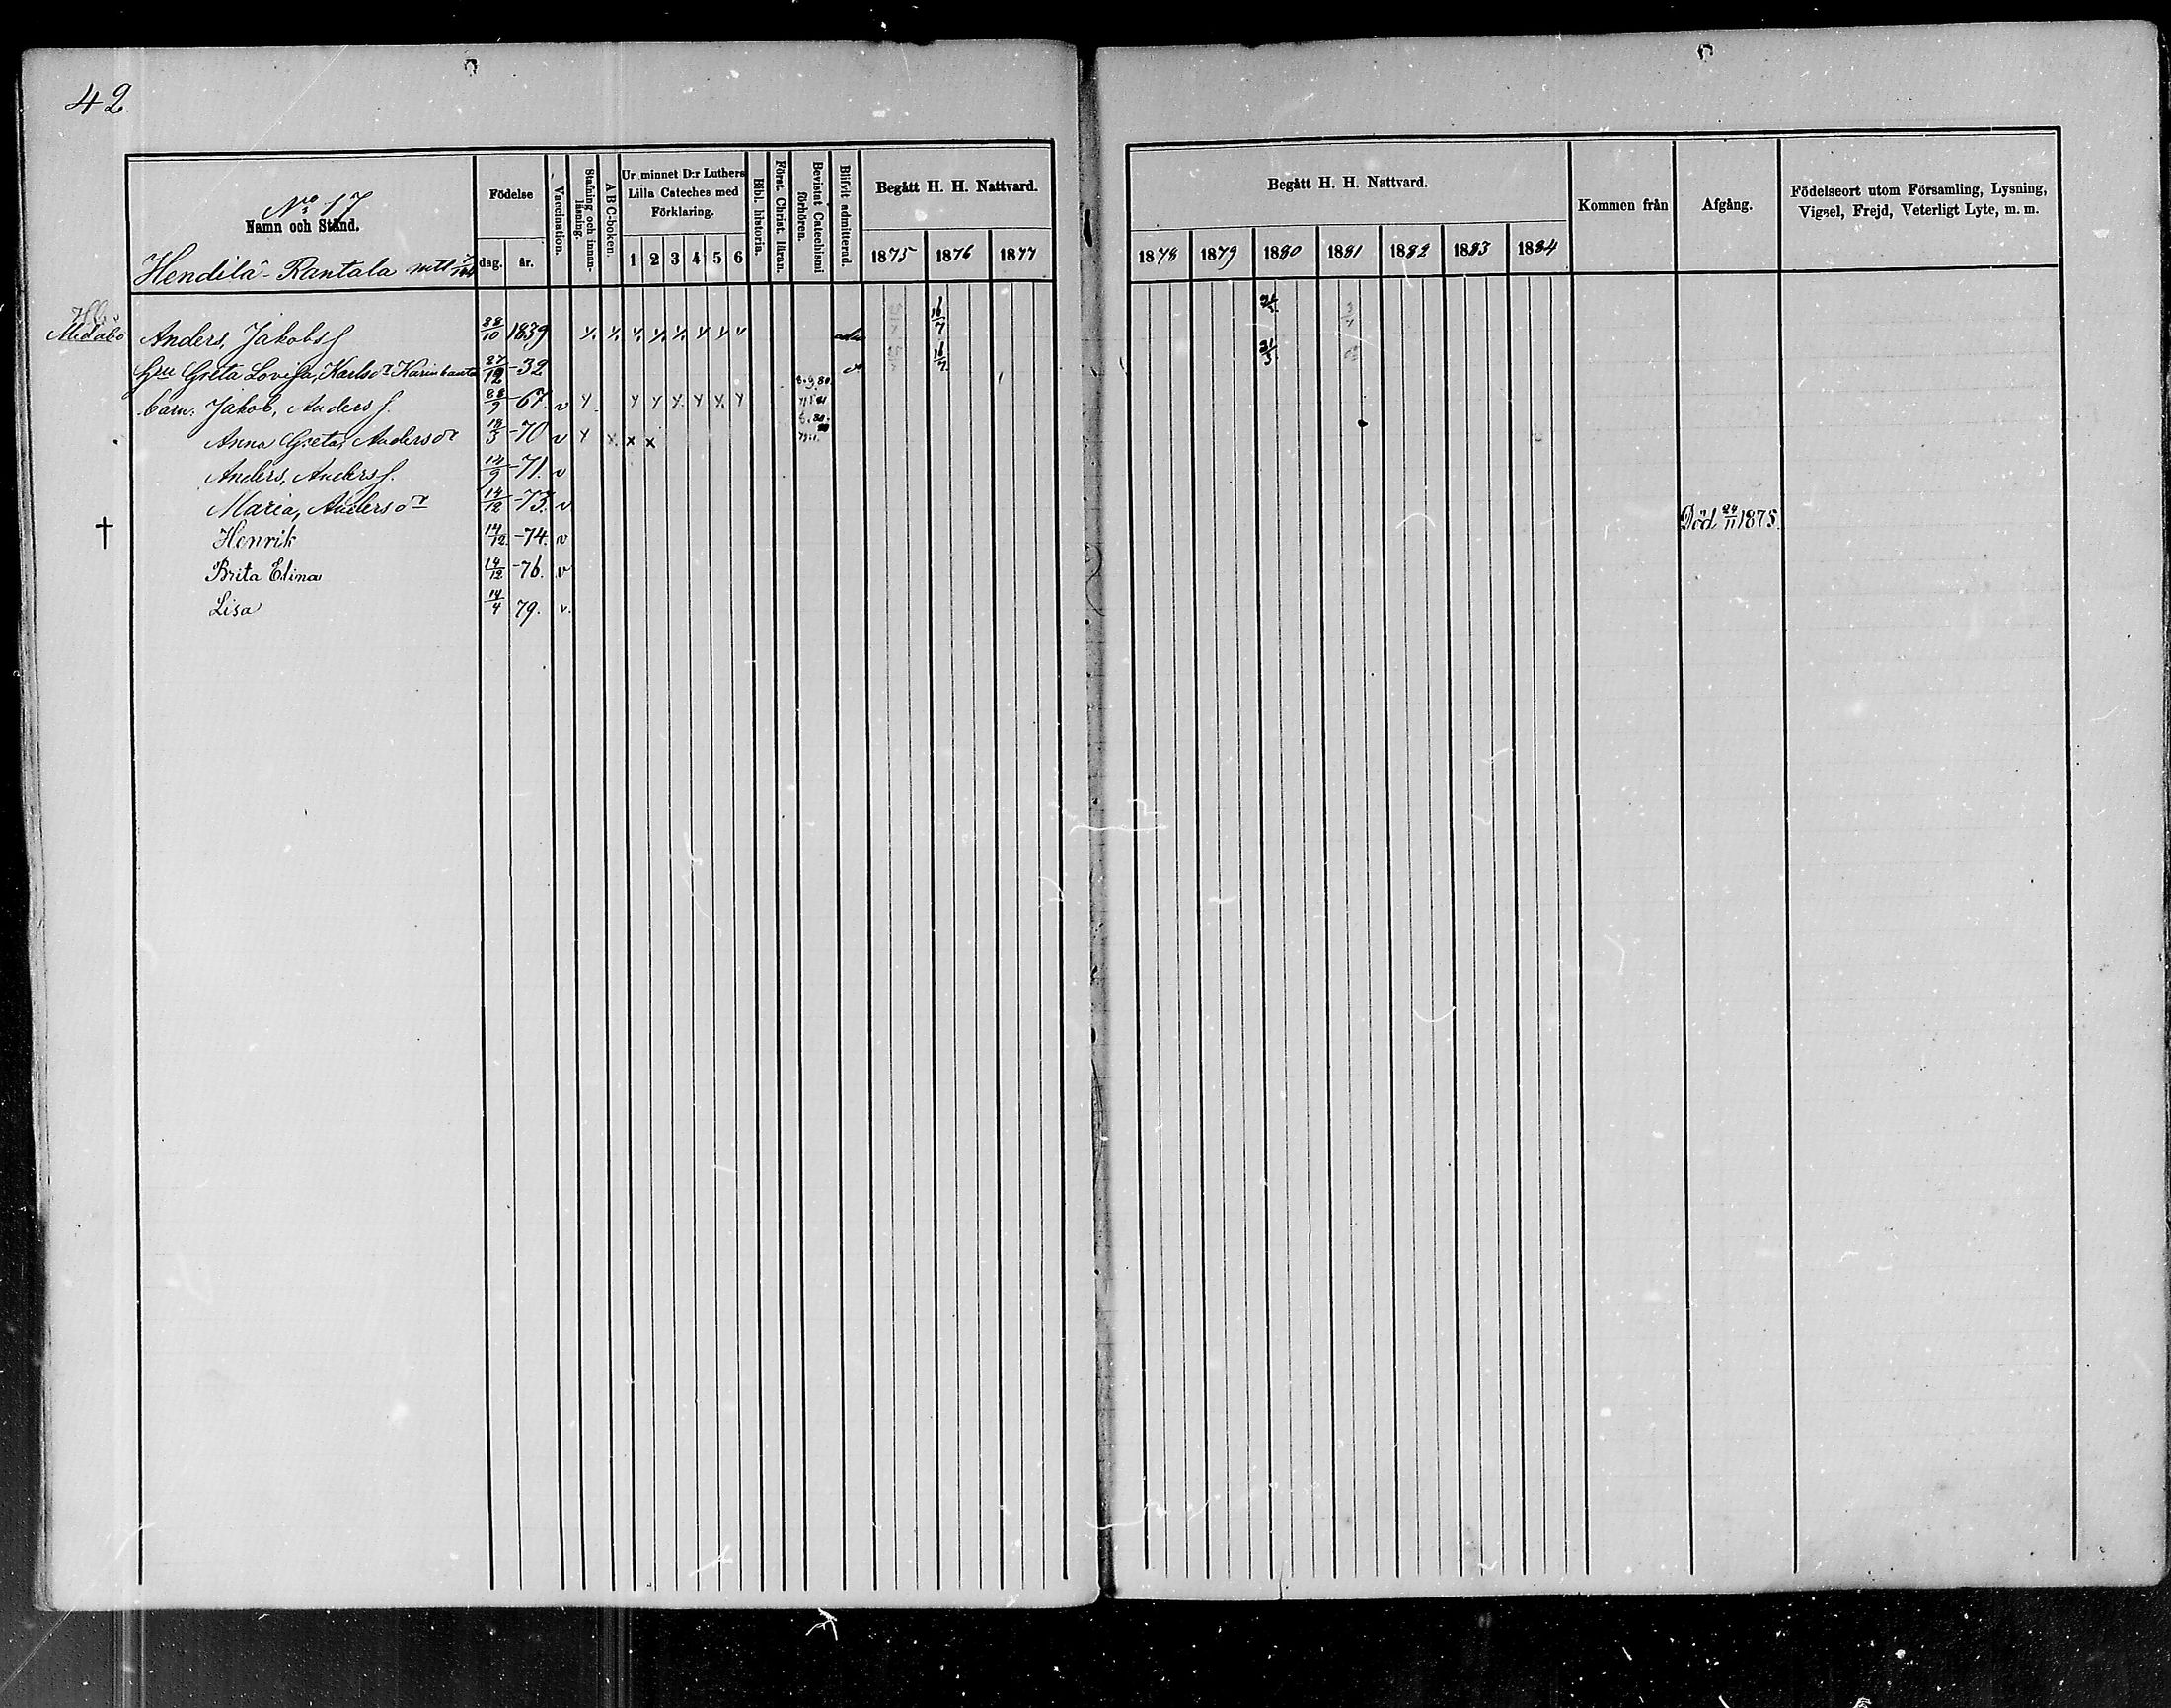 42.
No 17
Namn och Stånd.
Hendilä-Rantala
Födelse
dag. år.
Vaccination.
Stafning och innanläsning.
ABC-boken.
Ur minnet D:r Luthers Lilla Cateches med Förklaring.
1 2 3 4 5 6
Bibl. historia.
Först. Christ. läran.
Bevistat Catechismi förhören.
Blifvit admitterad.
Begått H. H. Nattvard.
1875 1876 1877
Begått H. H. Nattvard.
1878 1879 1880 1881 1882 1883 1884
Kommen från
Afgång.
Födelseort utom Församling, Lysning, Vigsel, Frejd, Veterligt Lyte, m. m.
Anders, Jakobsf 28/10 1839 16/7
Hru Greta Lovisa, Karlsdr 27/12 -32 16/7 21/3
barn: Jakob, Andersf. 28/9 -67. v
Anna Greta, Andersdr 18/3 -70 v x x x
Anders, Andersf. 14/9 -71. v
Maria, Andersdr 14/12 -73. v
† Henrik 14/12 -74. v Död 24/11 1875.
Brita Elina 14/12 -76. v
Lisa 14/4 79. v.